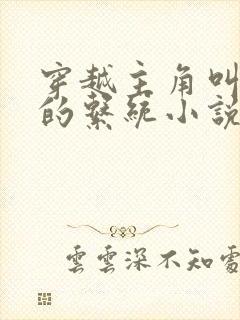 穿越主角叫
的系統小說
雲雲深不知處